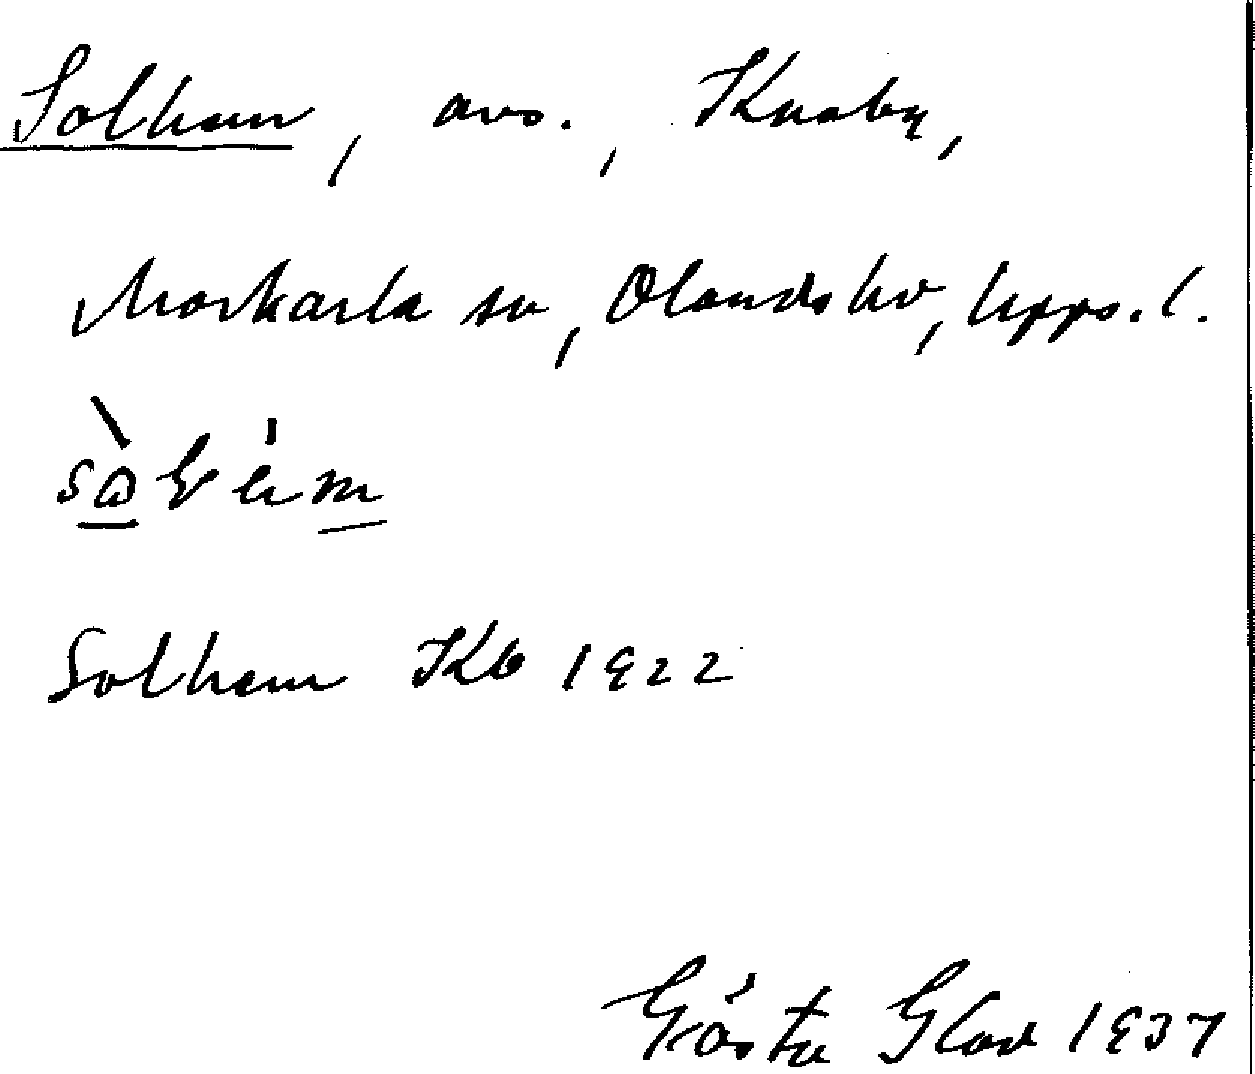 Solhem, avs., Knaby,
Morkarla sn, Olands hd, Upps. l.
Solhem Kb 1922
Gösta Glad 1937